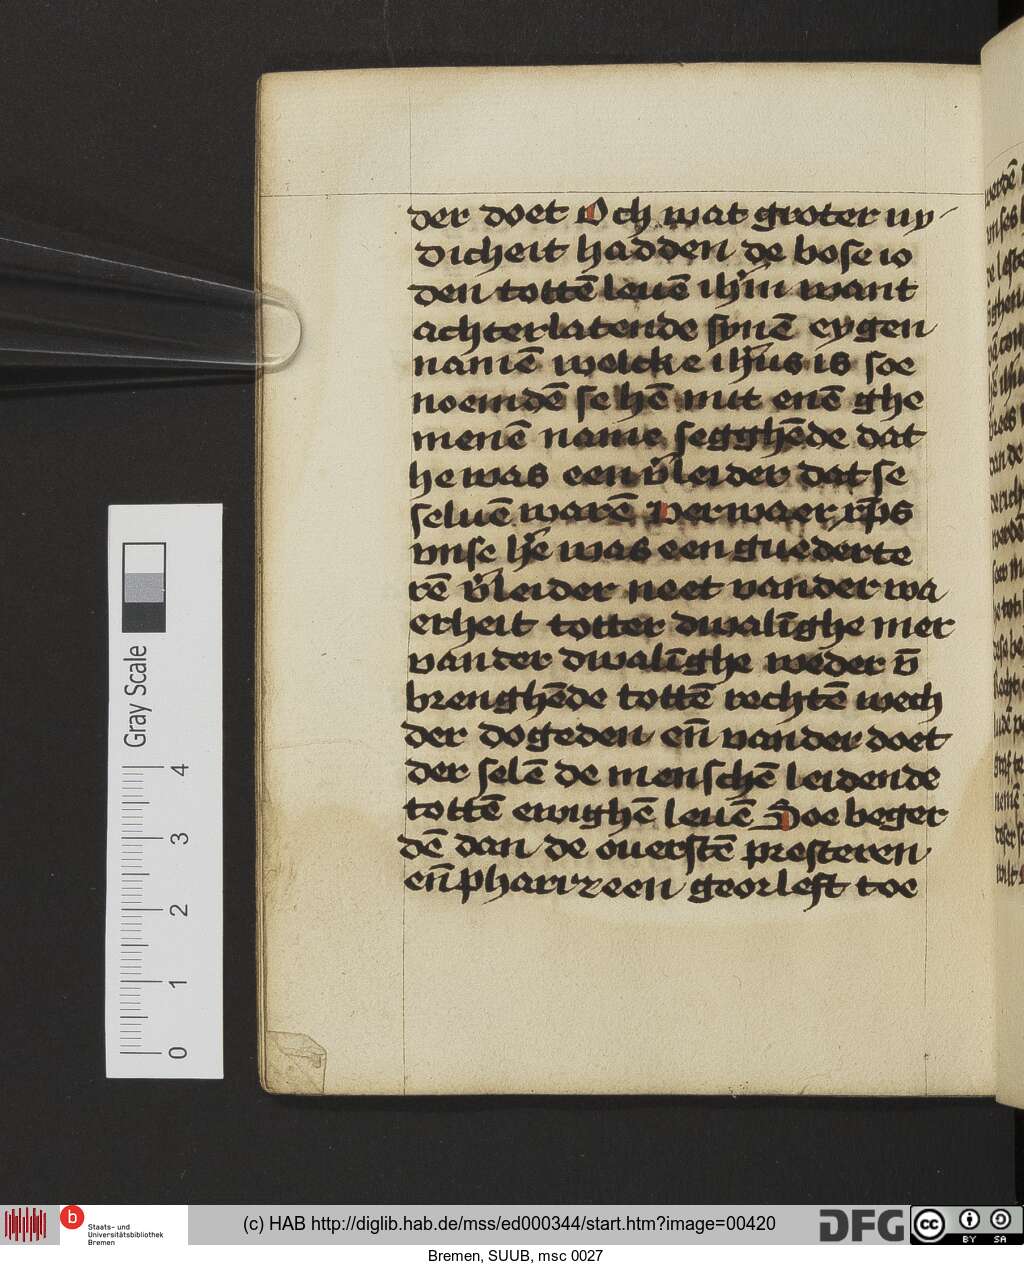 der doet Och wat groter ny
dicheit hadden de bose io
den tottē leuē ihm̄ want
achterlatende synē eygen
namē welcke ihūs is soe
noemdē se hēn mit enē ghe
menē name segghēde dat
he was een v̄leider dat se
seluē warē Verwaer xp̄s
vnse he᷑ was een guederte
rē v̄leider neet vander wa
erheit totter dwalīghe mer
vander dwalīghe weder v̄
brenghēde tottē rechtē wech
der dogeden en̄ vander doet
der selē de menschē leidende
tottē ewighē leuē Doe beger
dē dan de ouerstē presteren
en̄ pharizeen georleft toe
Gray Scale
4
3
2
1
0
b
Staats- und
Universitätsbibliothek
Bremen
(c) HAB http://diglib.hab.de/mss/ed000344/start.htm?image=00420
DFG
cc
BY SA
Bremen, SUUB, msc 0027